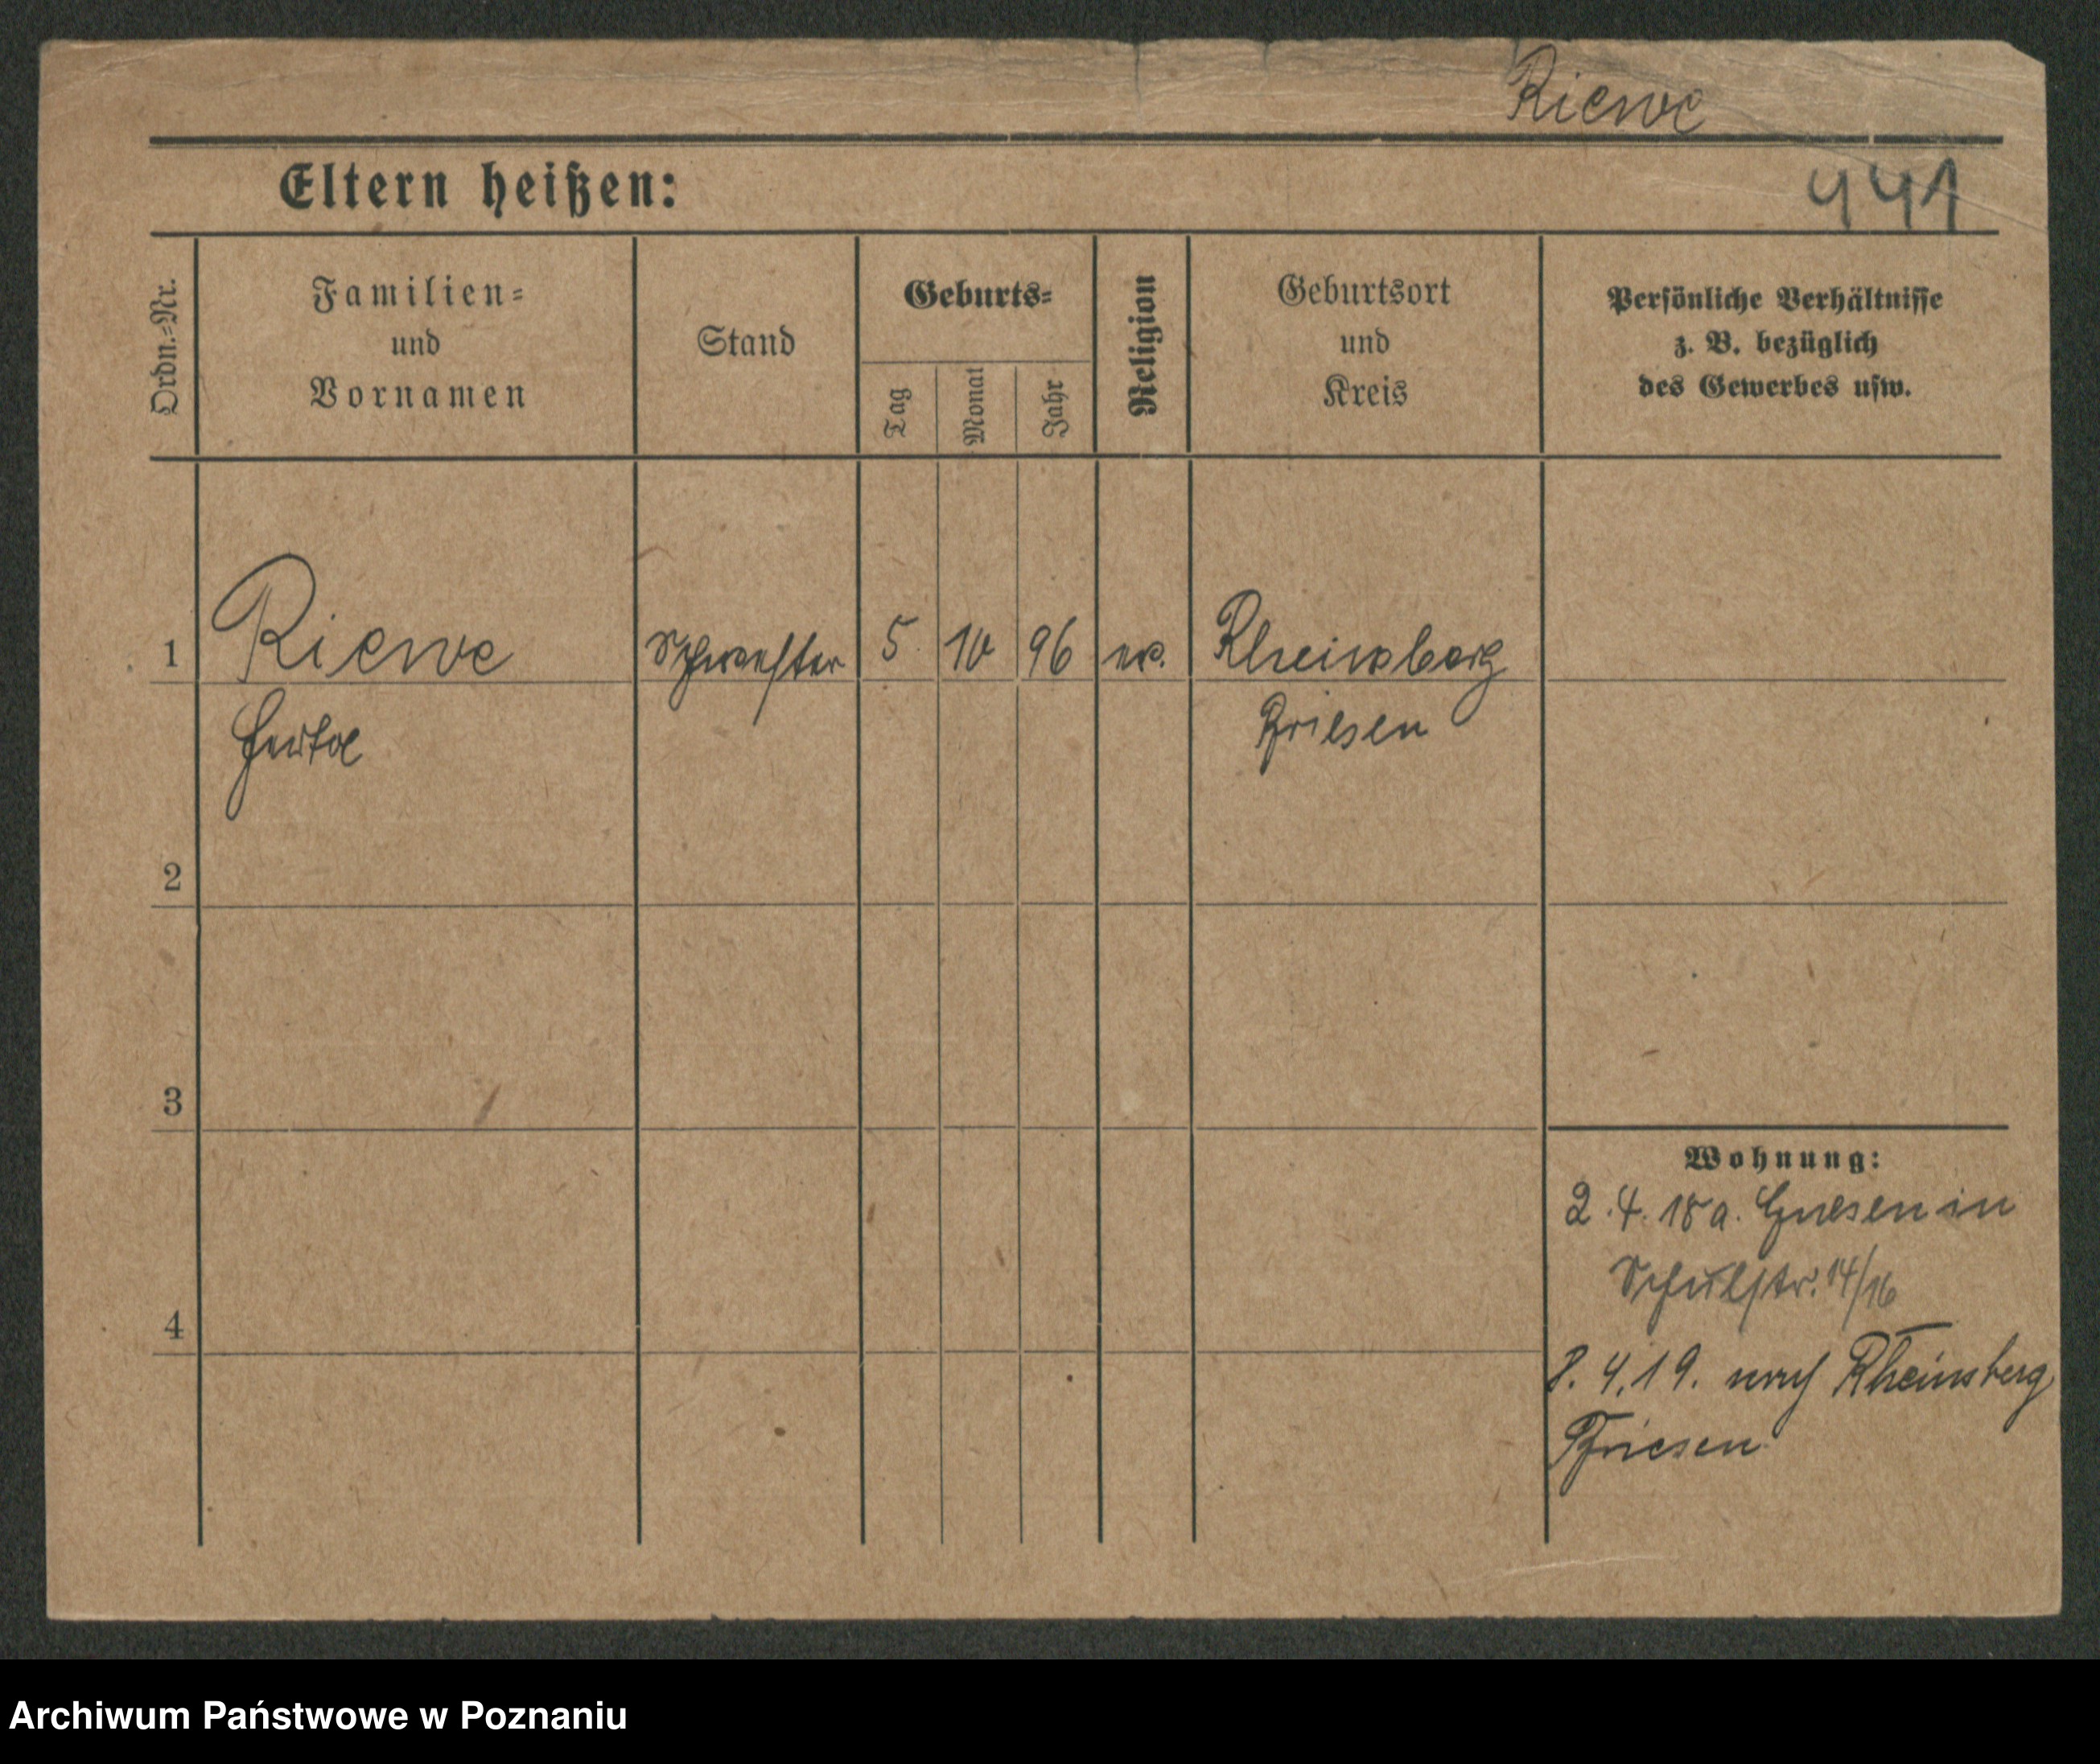 Riewe
Eltern heißen:
441
Ordn.-Nr.
Familien-
und
Vornamen
Stand
Geburts-
Tag
Monat
Jahr
Religion
Geburtsort
und
Kreis
Persönliche Verhältnisse
z. B. bezüglich
des Gewerbes usw.
1
Riewe
Schwester
5
10
96
ev.
Rheinsberg
Herta
Briesen
2
3
Wohnung:
2.4.18 a. Gnesen in
Schulstr. 14/16
4
8.4.19. nach Rheinsberg
Briesen
Archiwum Państwowe w Poznaniu